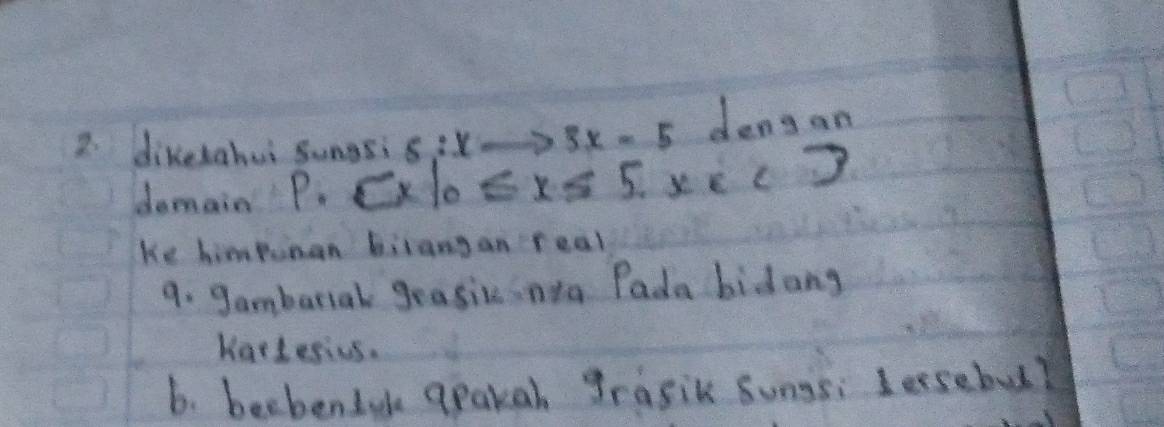 2. diketahui fungsi f : x → 3x - 5 dengan
domain P. {x | 0 ≤ x ≤ 5. x ∈ C }
ke himpunan bilangan real
a. gambarlah grafik nya Pada bidang
Kartesius.
b. berbentuk apakah grafik fungsi tersebut?